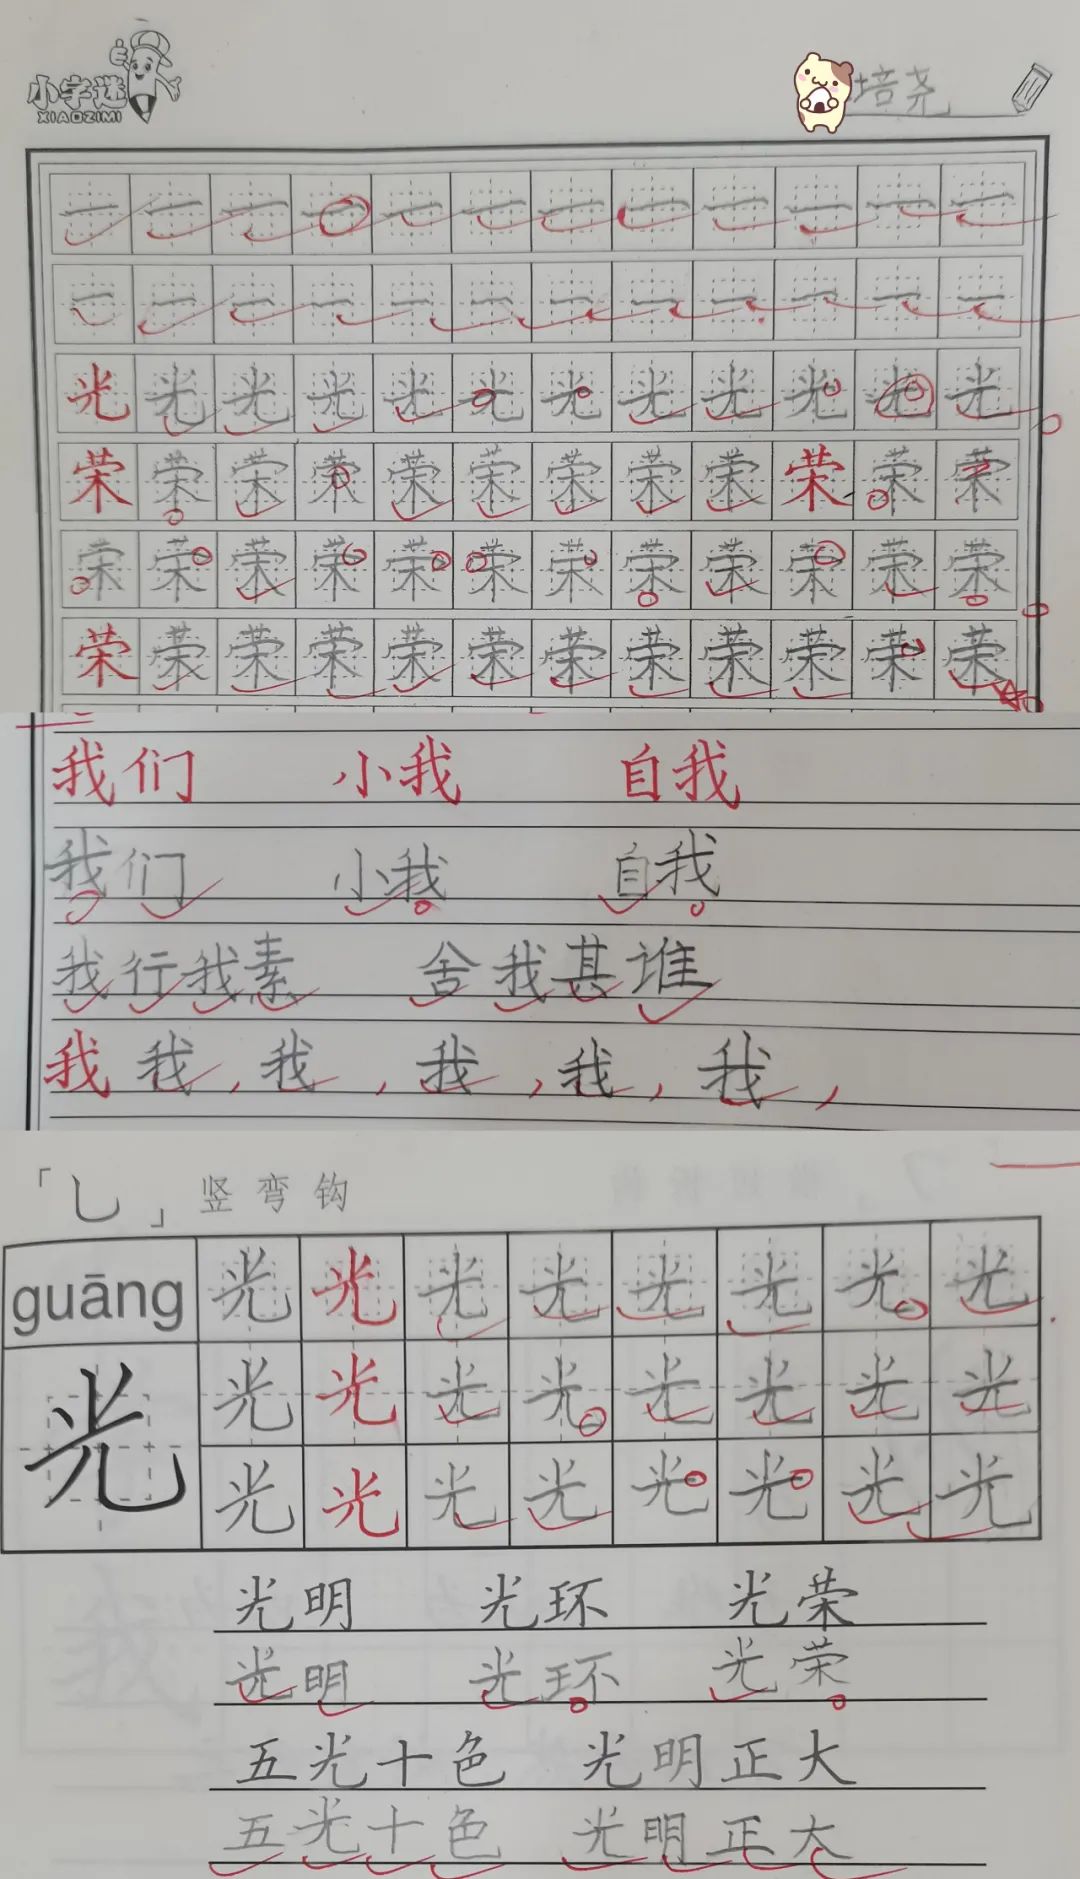 小字迷
XIAOZIMI
培尧
一 一 一 一 一 一 一 一 一 一 一 一
一 一 一 一 一 一 一 一 一 一 一 一
光 光 光 光 光 光 光 光 光 光 光 光
荣 荣 荣 荣 荣 荣 荣 荣 荣 荣 荣 荣
荣 荣 荣 荣 荣 荣 荣 荣 荣 荣 荣 荣
荣 荣 荣 荣 荣 荣 荣 荣 荣 荣 荣 荣
我们 小我 自我
我们 小我 自我
我行我素 舍我其谁
我 我, 我, 我, 我, 我,
「乚」竖弯钩
guāng 光 光 光 光 光 光 光 光
光 光 光 光 光 光 光 光 光
光 光 光 光 光 光 光 光
光明 光环 光荣
光明 光环 光荣
五光十色 光明正大
五光十色 光明正大